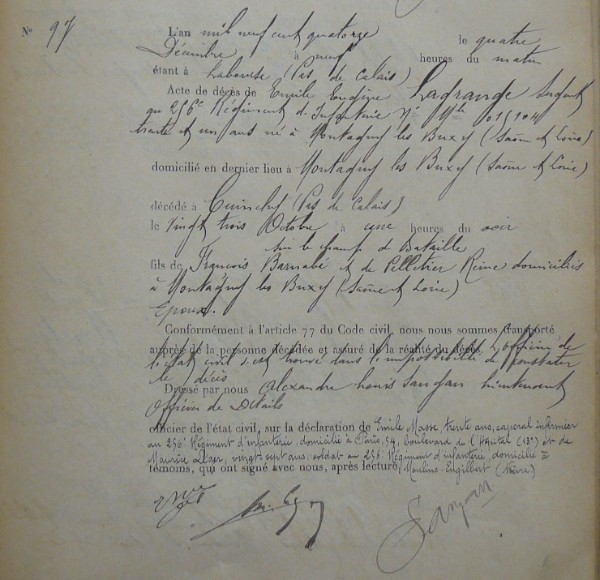 N° 97
L'an mil neuf cent quatorze le quatre
Décembre à neuf heures du matin
étant à Labourse (Pas de Calais)
Acte de décès de Emile Eugène Lagrange Soldat
au 256e Régiment d'Infanterie N° Mle
trente et un ans né à Montagny les Buxy (Saône et Loire)
domicilié en dernier lieu à Montagny les Buxy (Saône et Loire)
décédé à Cuinchy (Pas de Calais)
le vingt trois Octobre à une heures du soir
sur le champ de Bataille
fils de François Barnabé et de Pelletier Reine domiciliés
à Montagny les Buxy (Saône et Loire)
Epoux.
Conformément à l'article 77 du Code civil, nous nous sommes transporté
auprès de la personne décédée et assuré de la réalité du décès. L'officier de
l'état civil s'est trouvé dans l'impossibilité de constater
le décès
Dressé par nous Alexandre Louis Sanjan lieutenant
Officier de Détails
officier de l'état civil, sur la déclaration de Emile Masse trente ans, caporal infirmier
au 256e Régiment d'infanterie, domicilié à Paris, 54, boulevard de l'Hôpital (13e) et de
Maurice vingt sept ans, soldat au 256e Régiment d'infanterie, domicilié à
témoins, qui ont signé avec nous, après lecture, Moulins-Engilbert (Nièvre)
Sanjan